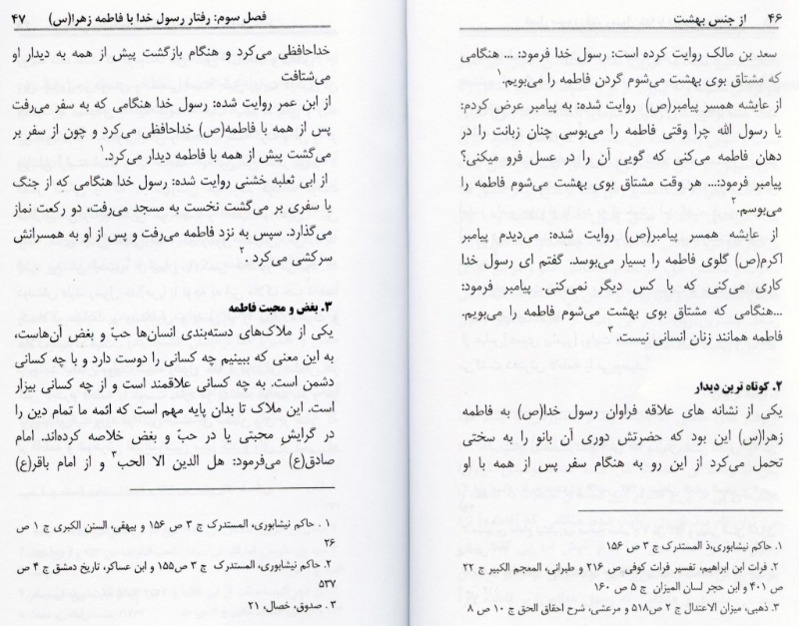 ۴۶ از جنس بهشت
سعد بن مالک روایت کرده است: رسول خدا فرمود: ... هنگامی
که مشتاق بوی بهشت می‌شوم گردن فاطمه را می‌بویم.۱
از عایشه همسر پیامبر(ص) روایت شده: به پیامبر عرض کردم:
یا رسول الله چرا وقتی فاطمه را می‌بوسی چنان زبانت را در
دهان فاطمه می‌کنی که گویی آن را در عسل فرو میکنی؟
پیامبر فرمود:... هر وقت مشتاق بوی بهشت می‌شوم فاطمه را
می‌بوسم.۲
از عایشه همسر پیامبر(ص) روایت شده: می‌دیدم پیامبر
اکرم(ص) گلوی فاطمه را بسیار می‌بوسد. گفتم ای رسول خدا
کاری می‌کنی که با کس دیگر نمی‌کنی. پیامبر فرمود:
...هنگامی که مشتاق بوی بهشت می‌شوم فاطمه را می‌بویم.
فاطمه همانند زنان انسانی نیست.۳
۲. کوتاه ترین دیدار
یکی از نشانه های علاقه فراوان رسول خدا(ص) به فاطمه
زهرا(س) این بود که حضرتش دوری آن بانو را به سختی
تحمل می‌کرد از این رو به هنگام سفر پس از همه با او
۱. حاکم نیشابوری،ذ المستدرک ج ۳ ص ۱۵۶
۲. فرات ابن ابراهیم، تفسیر فرات کوفی ص ۲۱۶ و طبرانی، المعجم الکبیر ج ۲۲
ص ۴۰۱ و ابن حجر لسان المیزان ج ۵ ص ۱۶۰
۳. ذهبی، میزان الاعتدال ج ۲ ص۵۱۸ و مرعشی، شرح احقاق الحق ج ۱۰ ص ۸
فصل سوم: رفتار رسول خدا با فاطمه زهرا(س) ۴۷
خداحافظی می‌کرد و هنگام بازگشت پیش از همه به دیدار او
می‌شتافت
از ابن عمر روایت شده: رسول خدا هنگامی که به سفر می‌رفت
پس از همه با فاطمه(ص) خداحافظی می‌کرد و چون از سفر بر
می‌گشت پیش از همه با فاطمه دیدار می‌کرد.۱
از ابی ثعلبه خشنی روایت شده: رسول خدا هنگامی که از جنگ
یا سفری بر می‌گشت نخست به مسجد می‌رفت، دو رکعت نماز
می‌گذارد. سپس به نزد فاطمه می‌رفت و پس از او به همسرانش
سرکشی می‌کرد .۲
۳. بغض و محبت فاطمه
یکی از ملاک‌های دسته‌بندی انسان‌ها حبّ و بغض آن‌هاست،
به این معنی که ببینیم چه کسانی را دوست دارد و با چه کسانی
دشمن است. به چه کسانی علاقمند است و از چه کسانی بیزار
است. این ملاک تا بدان پایه مهم است که ائمه ما تمام دین را
در گرایشِ محبتی یا در حبّ و بغض خلاصه کرده‌اند. امام
صادق(ع) می‌فرمود: هل الدین الا الحب۳ و از امام باقر(ع)
۱ . حاکم نیشابوری، المستدرک ج ۳ ص ۱۵۶ و بیهقی، السنن الکبری ج ۱ ص
۲۶
۲ . حاکم نیشابوری، المستدرک ج ۳ ص۱۵۵ و ابن عساکر، تاریخ دمشق ج ۴ ص
۵۳۷
۳ . صدوق، خصال، ۲۱